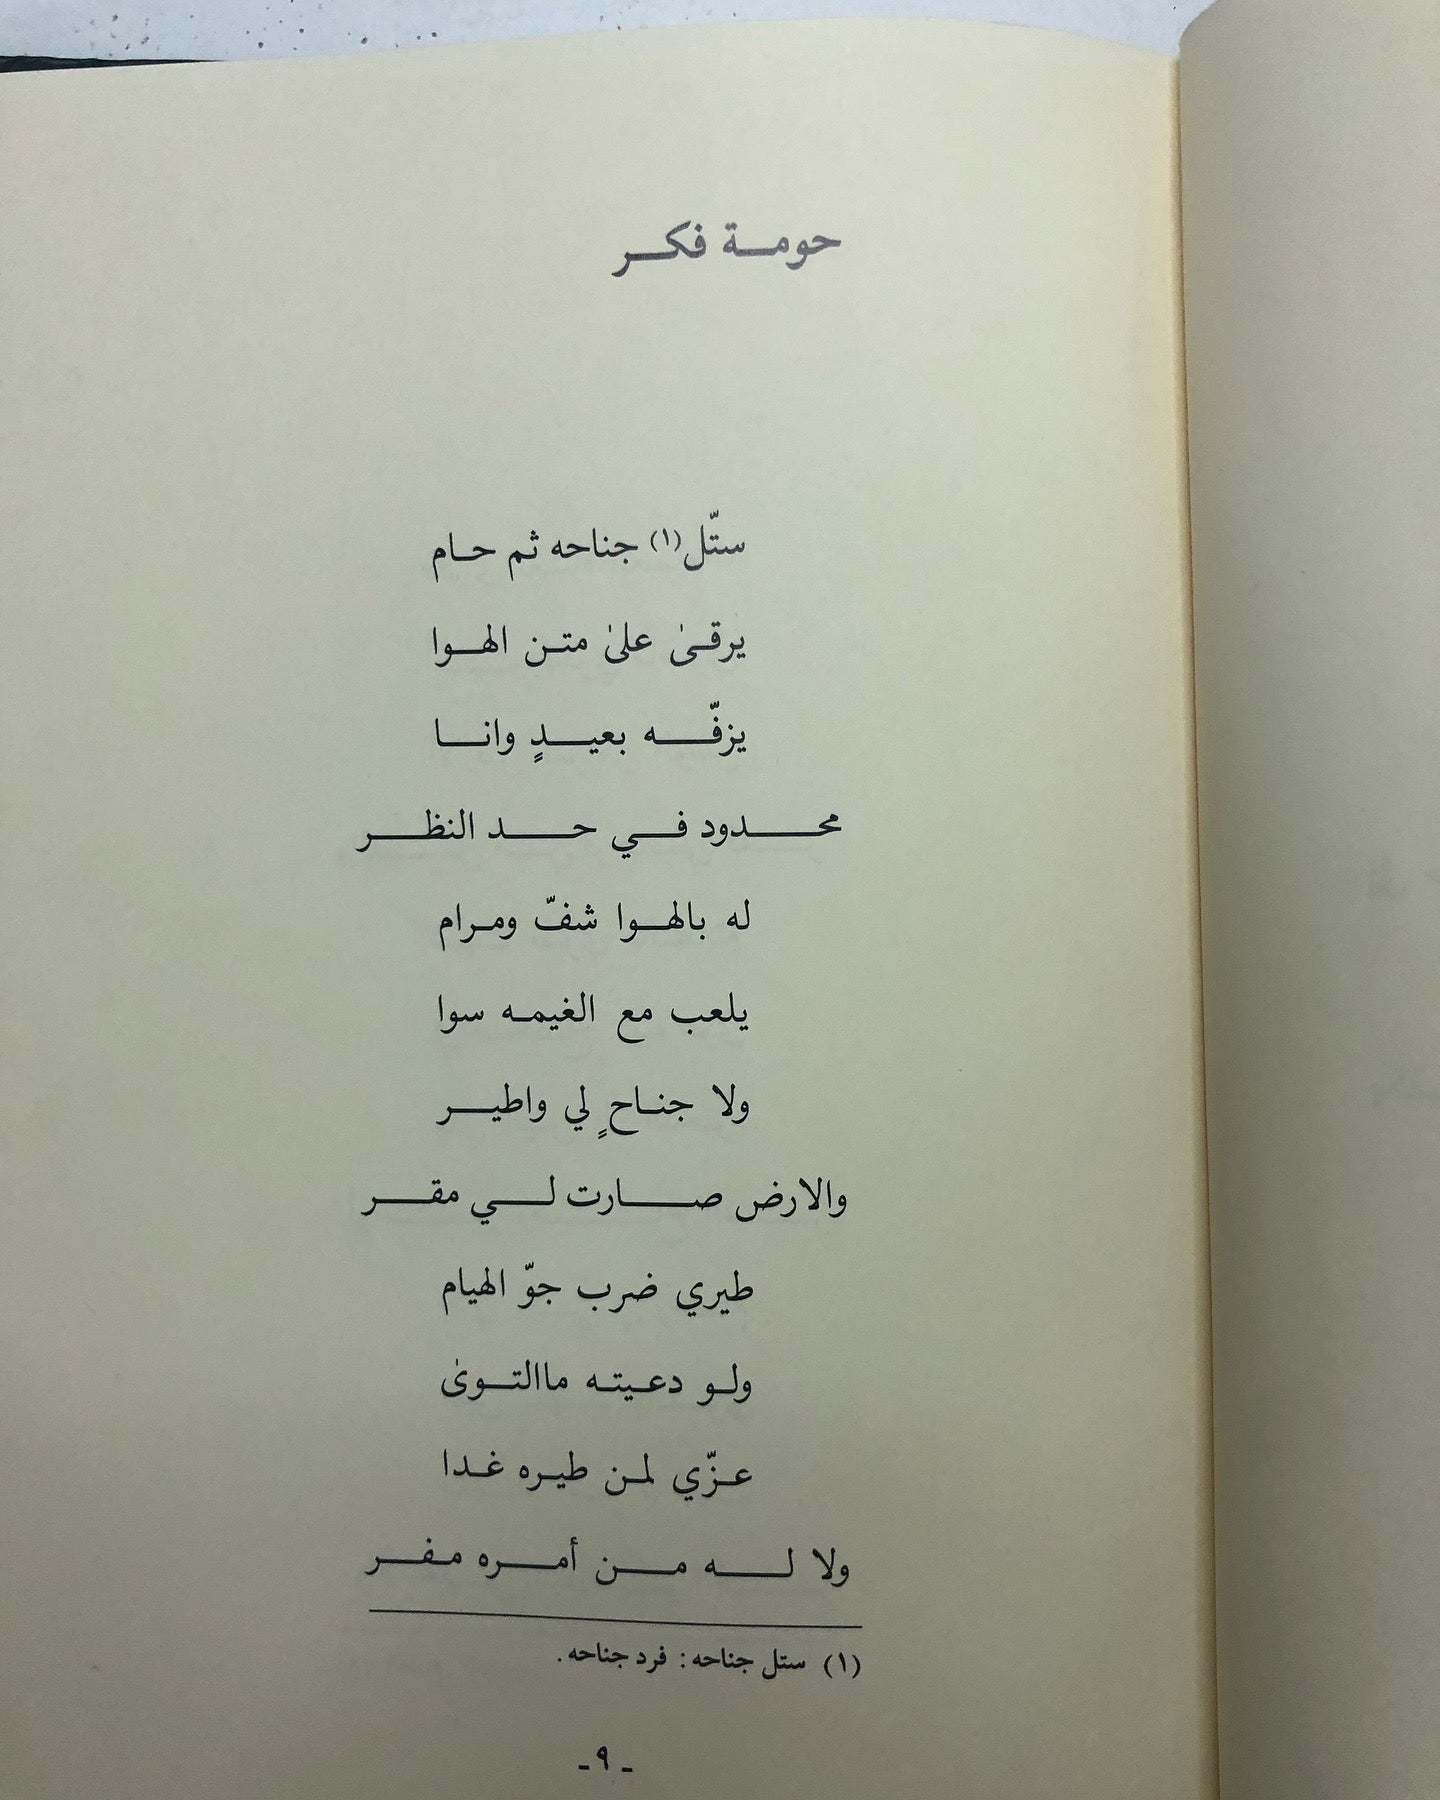 حومة فكر
ستّل(١) جناحه ثم حام
يرقىٰ علىٰ متن الهوا
يزفّه بعيدٍ وانا
محدود في حد النظر
له بالهوا شفّ ومرام
يلعب مع الغيمه سوا
ولا جناحٍ لي واطير
والارض صارت لي مقر
طيري ضرب جوّ الهيام
ولو دعيته ماالتوىٰ
عزّي لمن طيره غدا
ولا له من أمره مفر
(١) ستل جناحه: فرد جناحه.
ـ ٩ ـ